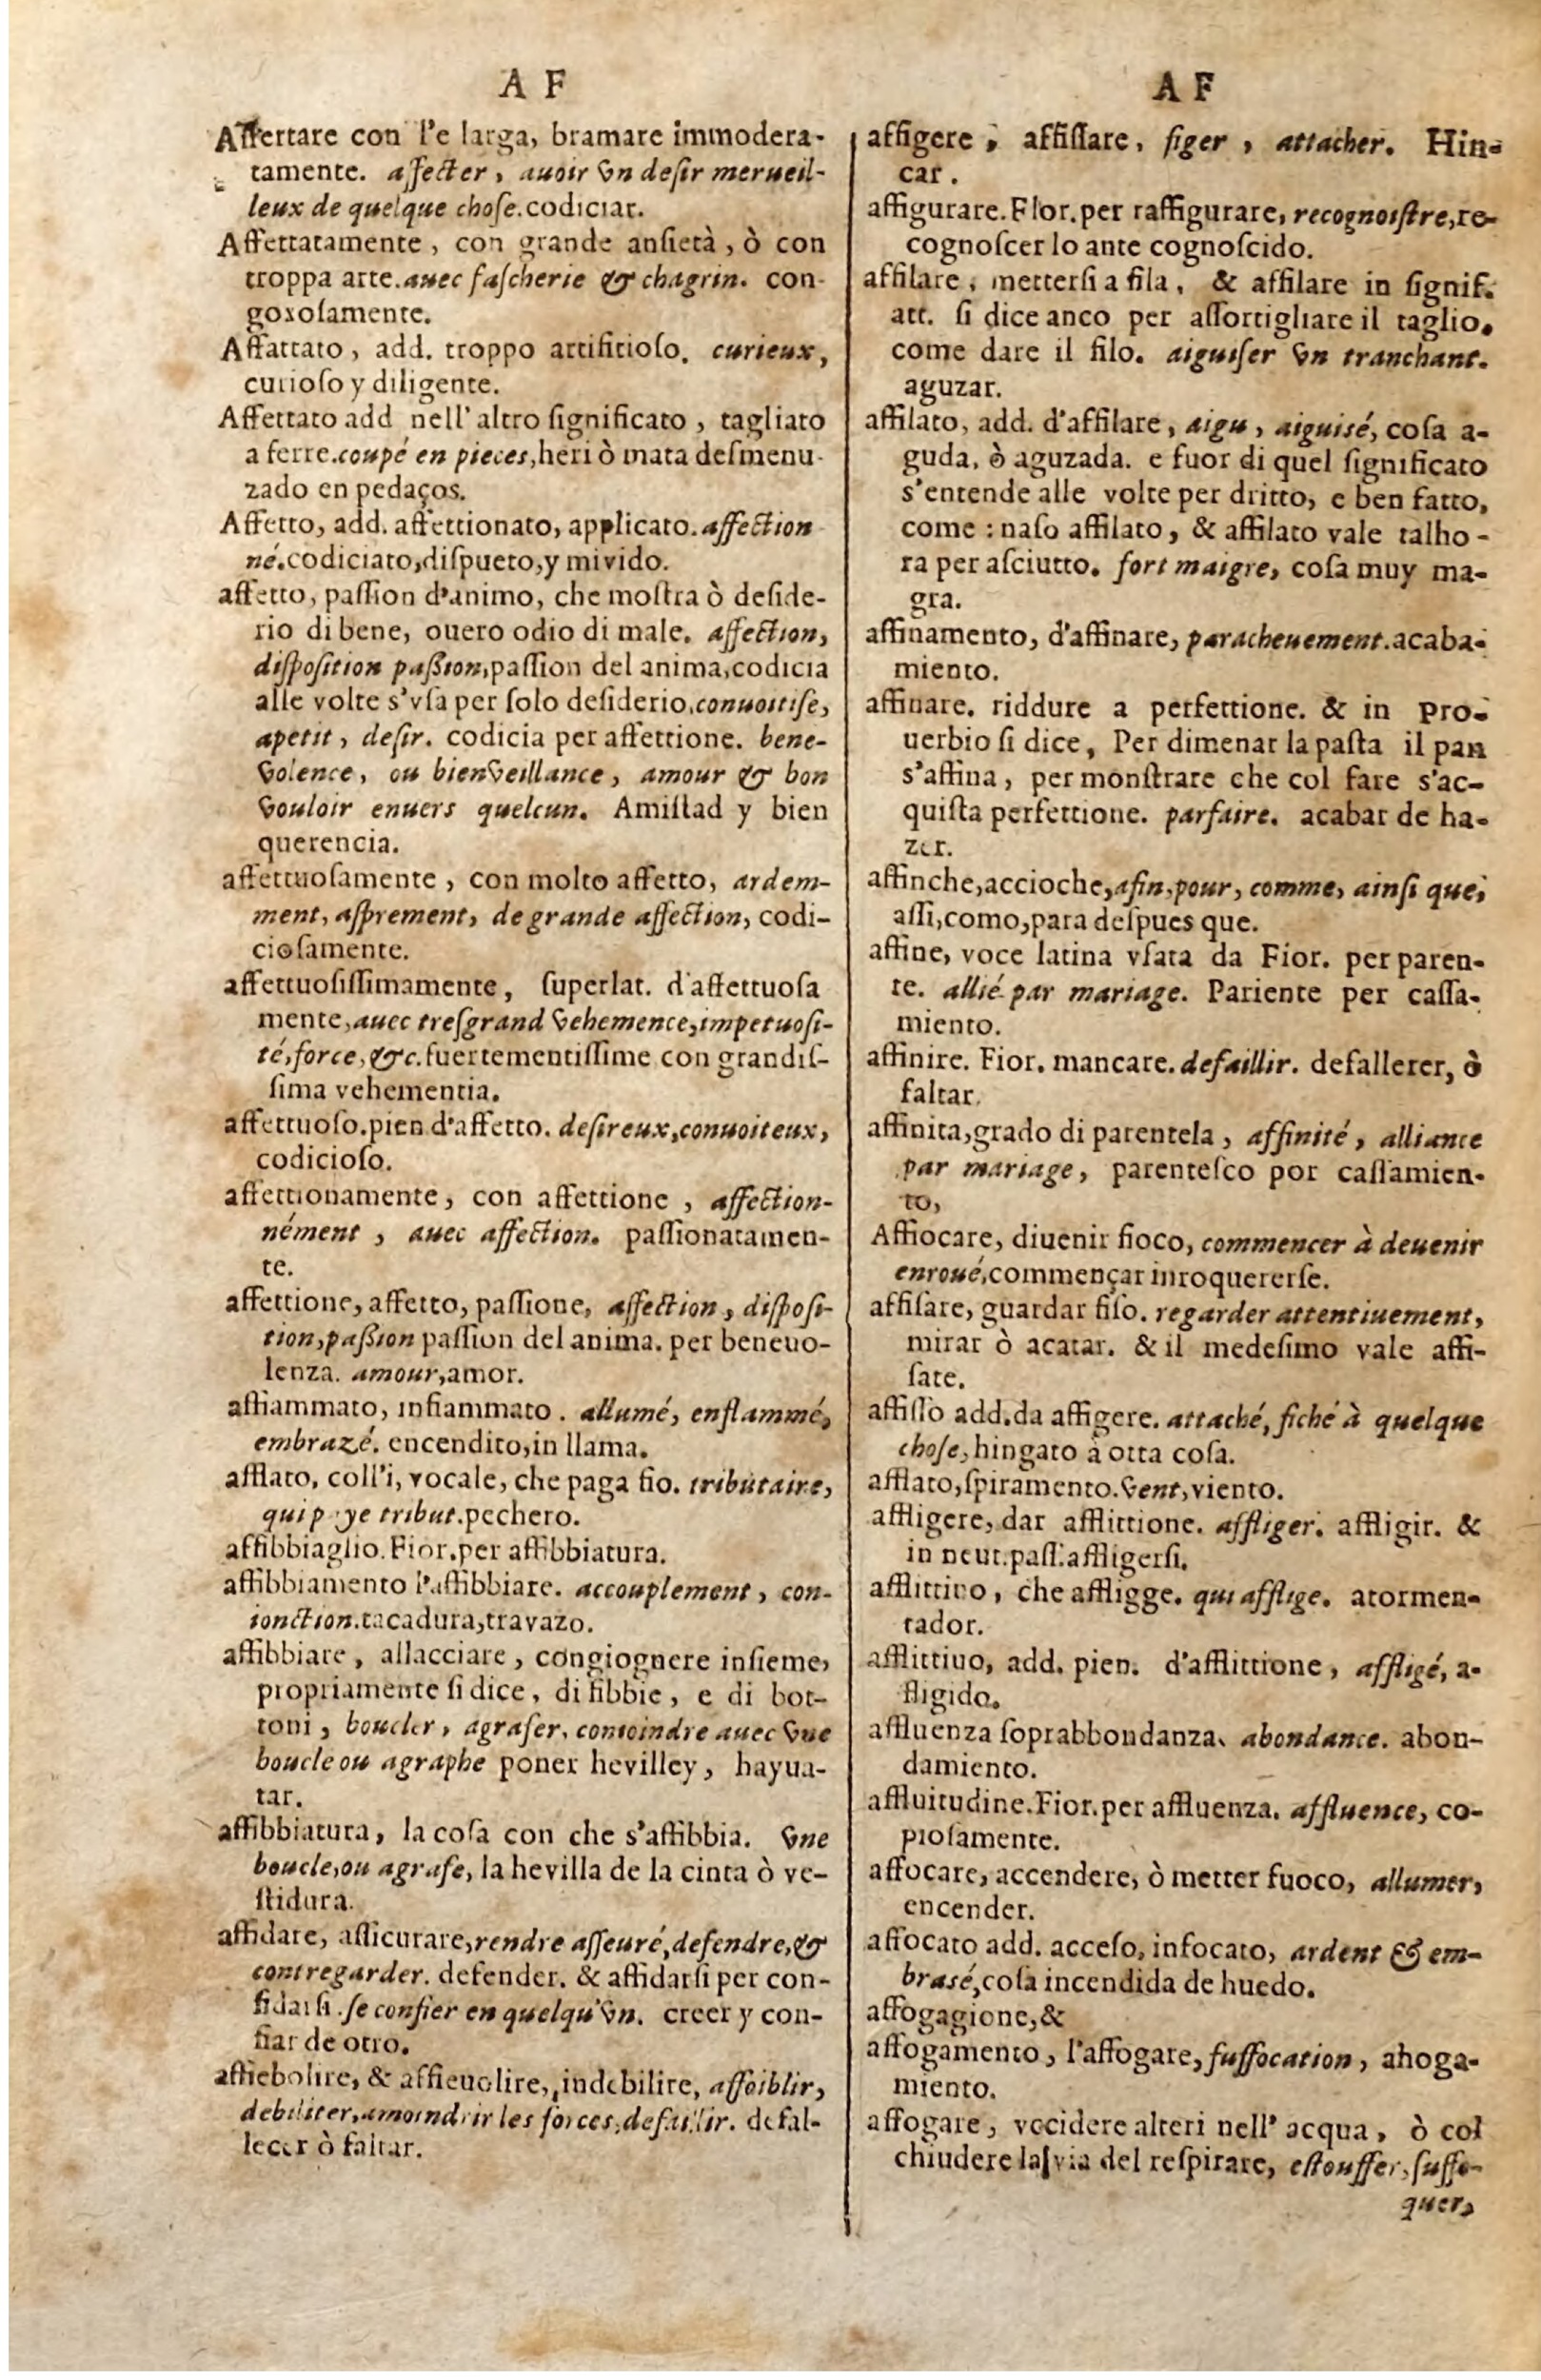 A F
Affettare con l'e larga, bramare immodera-
tamente. affecter, auoir vn desir merueil-
leux de quelque chose. codiciar.
Affettatamente, con grande ansietà, ò con
troppa arte. auec fascherie & chagrin. con-
goxosamente.
Affattato, add. troppo artifitioso. curieux,
curioso y diligente.
Affettato add nell' altro significato, tagliato
a ferre. coupé en pieces, heri ò mata desmenu-
zado en pedaços.
Affetto, add. affettionato, applicato. affection
né. codiciato, dispueto, y mivido.
affetto, passion d'animo, che mostra ò deside-
rio di bene, ouero odio di male. affection,
disposition passion, passion del anima, codicia
alle volte s'vsa per solo desiderio. conuoitise,
apetit, desir. codicia per affettione. bene-
volence, ou bienveillance, amour & bon
vouloir enuers quelcun. Amistad y bien
querencia.
affettuosamente, con molto affetto, ardem-
ment, asprement, de grande affection, codi-
ciosamente.
affettuosissimamente, superlat. d'affettuosa
mente, auec tresgrand vehemence, impetuosi-
té, force, &c. fuertementissime con grandis-
sima vehementia.
affettuoso. pien d'affetto. desireux, conuoiteux,
codicioso.
affettionamente, con affettione, affection-
nément, auec affection. passionatamen-
te.
affettione, affetto, passione, affection, disposi-
tion, passion passion del anima. per beneuo-
lenza. amour, amor.
affiammato, infiammato. allumé, enflammé,
embrazé. encendito, in llama.
afflato, coll'i, vocale, che paga fio. tributaire,
qui p ye tribut. pechero.
affibbiaglio. Fior. per affibbiatura.
affibbiamento l'affibbiare. accouplement, con-
ionction. tacadura, travazo.
affibbiare, allacciare, congiognere insieme,
propriamente si dice, di fibbie, e di bot-
toni, boucler, agrafer, conioindre auec vne
boucle ou agraphe poner hevilley, hayua-
tar.
affibbiatura, la cosa con che s'affibbia. vne
boucle, ou agrafe, la hevilla de la cinta ò ve-
stidura.
affidare, assicurare, rendre asseuré, defendre, &
contregarder. defender. & affidarsi per con-
fidarsi. se confier en quelqu'vn. creer y con-
fiar de otro.
affiebolire, & affieuolire, indebilire, affoiblir,
debiliter, amoindrir les forces, defaillir. defal-
lecer ò faltar.
A F
affigere, affissare, figer, attacher. Hin-
car.
affigurare. Flor. per raffigurare, recognoistre, re-
cognoscer lo ante cognoscido.
affilare, mettersi a fila, & affilare in signif.
att. si dice anco per assottigliare il taglio.
come dare il filo. aiguiser vn tranchant.
aguzar.
affilato, add. d'affilare, aigu, aiguisé, cosa a-
guda, ò aguzada. e fuor di quel significato
s'entende alle volte per dritto, e ben fatto,
come: naso affilato, & affilato vale talho-
ra per asciutto. fort maigre, cosa muy ma-
gra.
affinamento, d'affinare, paracheuement. acaba-
miento.
affinare. riddure a perfettione. & in pro-
uerbio si dice, Per dimenar la pasta il pan
s'affina, per monstrare che col fare s'ac-
quista perfettione. parfaire. acabar de ha-
zer.
affinche, accioche, afin, pour, comme, ainsi que,
assi, como, para despues que.
affine, voce latina vsata da Fior. per paren-
te. allié par mariage. Pariente per cassa-
miento.
affinire. Fior. mancare. defaillir. defallerer, ò
faltar.
affinita, grado di parentela, affinité, alliance
par mariage, parentesco por cassamien-
to,
Affiocare, diuenir fioco, commencer à deuenir
enroué, commençar inroquererse.
affisare, guardar fiso. regarder attentiuement,
mirar ò acatar. & il medesimo vale affi-
sate.
affisso add. da affigere. attaché, fiché à quelque
chose, hingato à otta cosa.
afflato, spiramento. vent, viento.
affligere, dar afflittione. affliger. affligir. &
in neut. pass. affligersi.
afflittivo, che affligge. qui afflige. atormen-
tador.
afflittiuo, add. pien. d'afflittione, affligé, a-
fligido.
affluenza soprabbondanza, abondance. abon-
damiento.
affluitudine. Fior. per affluenza. affluence, co-
piosamente.
affocare, accendere, ò metter fuoco, allumer,
encender.
affocato add. acceso, infocato, ardent & em-
brasé, cosa incendida de huedo.
affogagione, &
affogamento, l'affogare, suffocation, ahoga-
miento.
affogare, vccidere alteri nell' acqua, ò col
chiudere la via del respirare, estouffer, suffo-
quer,